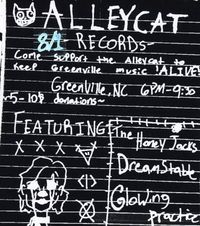 ALLEYCAT
8/1 RECORDS~
Come support the Alleycat to
keep Greenville music !ALIVE!
Greenville, NC 6PM-9:30
~5-10$ donations~
FEATURING:
The
Honey Jacks
Dream Stable
Glowing
practice